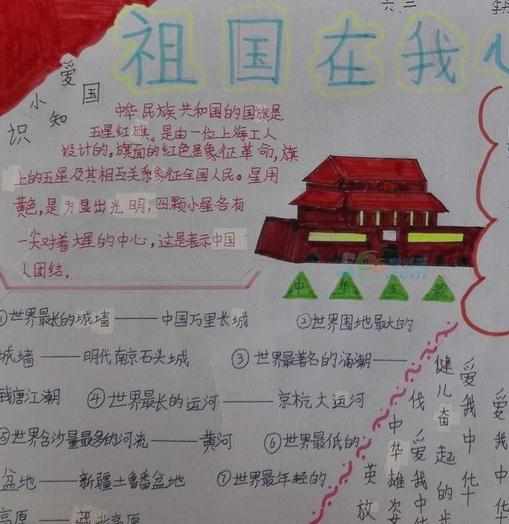 六.三
祖国在我
爱国
小知识
中华民族共和国的国旗是
五星红旗。是由一位上海工人
设计的,旗面的红色象征革命,旗
上的五星及其相互关系象征全国人民。星用
黄色,是为显出光明,四颗小星各有
一尖对着大星的中心,这是表示中国
人团结。
①世界最长的城墙——中国万里长城
②世界围地最大的
城墙——明代南京石头城
③世界最著名的涌潮——
钱唐江潮
④世界最长的运河——京杭大运河
⑤世界含沙量最多的河流——黄河
⑥世界最低的
盆地——新疆土鲁番盆地
⑦世界最年轻的
高原——
爱我中华
爱我中华
健儿奋起的步
伐
爱我中华
中华雄姿
英
放